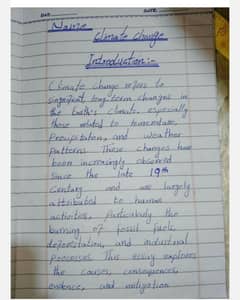 DAY DATE
Name
Climate change
Introduction:-
Climate change refers to
significant, long-term changes in
the Earth's climate, especially
those related to temperature,
Precipitation, and weather
patterns. These changes have
been increasingly observed
since the late 19th
Century and are largely
attributed to human
activities, Particularly the
burning of fossil fuels,
deforestation, and industrial
processes. This essay explores
the causes, consequences,
evidence, and mitigation